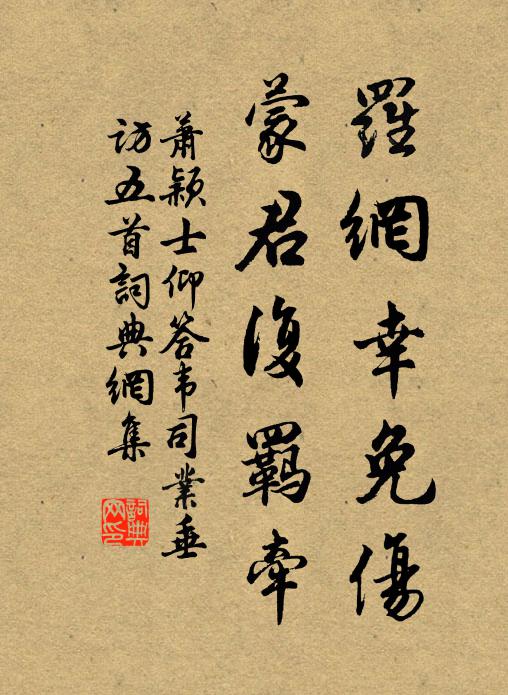 羅網幸免傷
蒙君復羈牽
蕭穎士仰答韦司業垂
訪五首詞典網集
詞典
网印